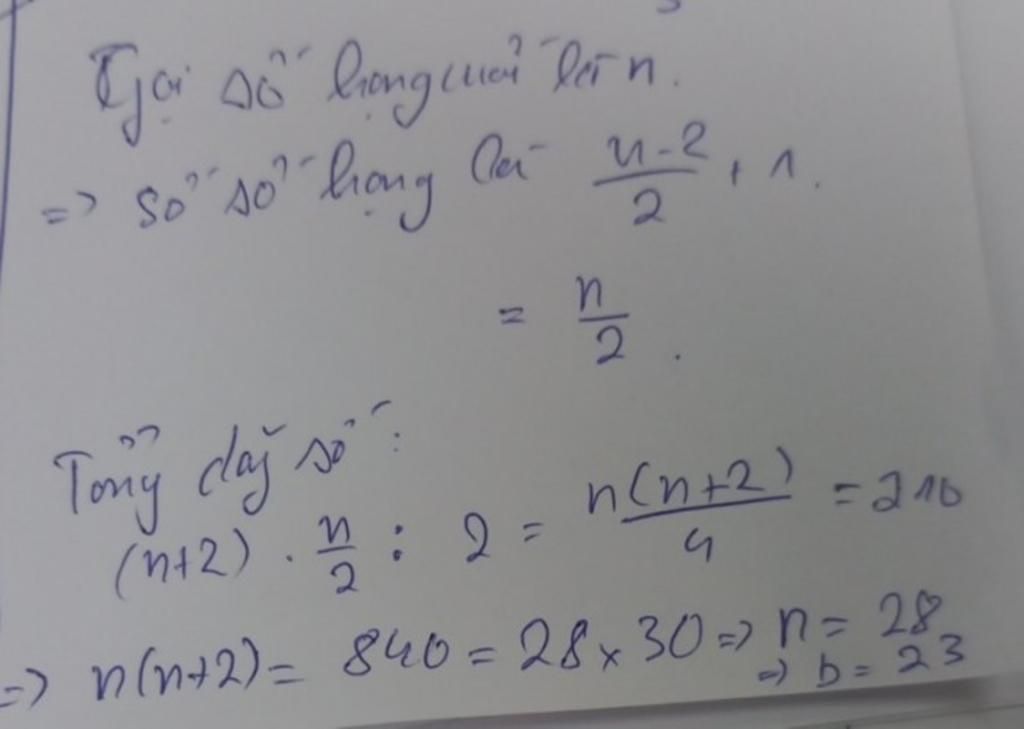 Gọi số hạng cuối là n.
=> số số hạng là \frac{n-2}{2} + 1.
= \frac{n}{2}.
Tổng dãy số:
(n+2) . \frac{n}{2} : 2 = \frac{n(n+2)}{4} = 210
=> n(n+2) = 840 = 28 x 30 => n = 28
=> b = 23